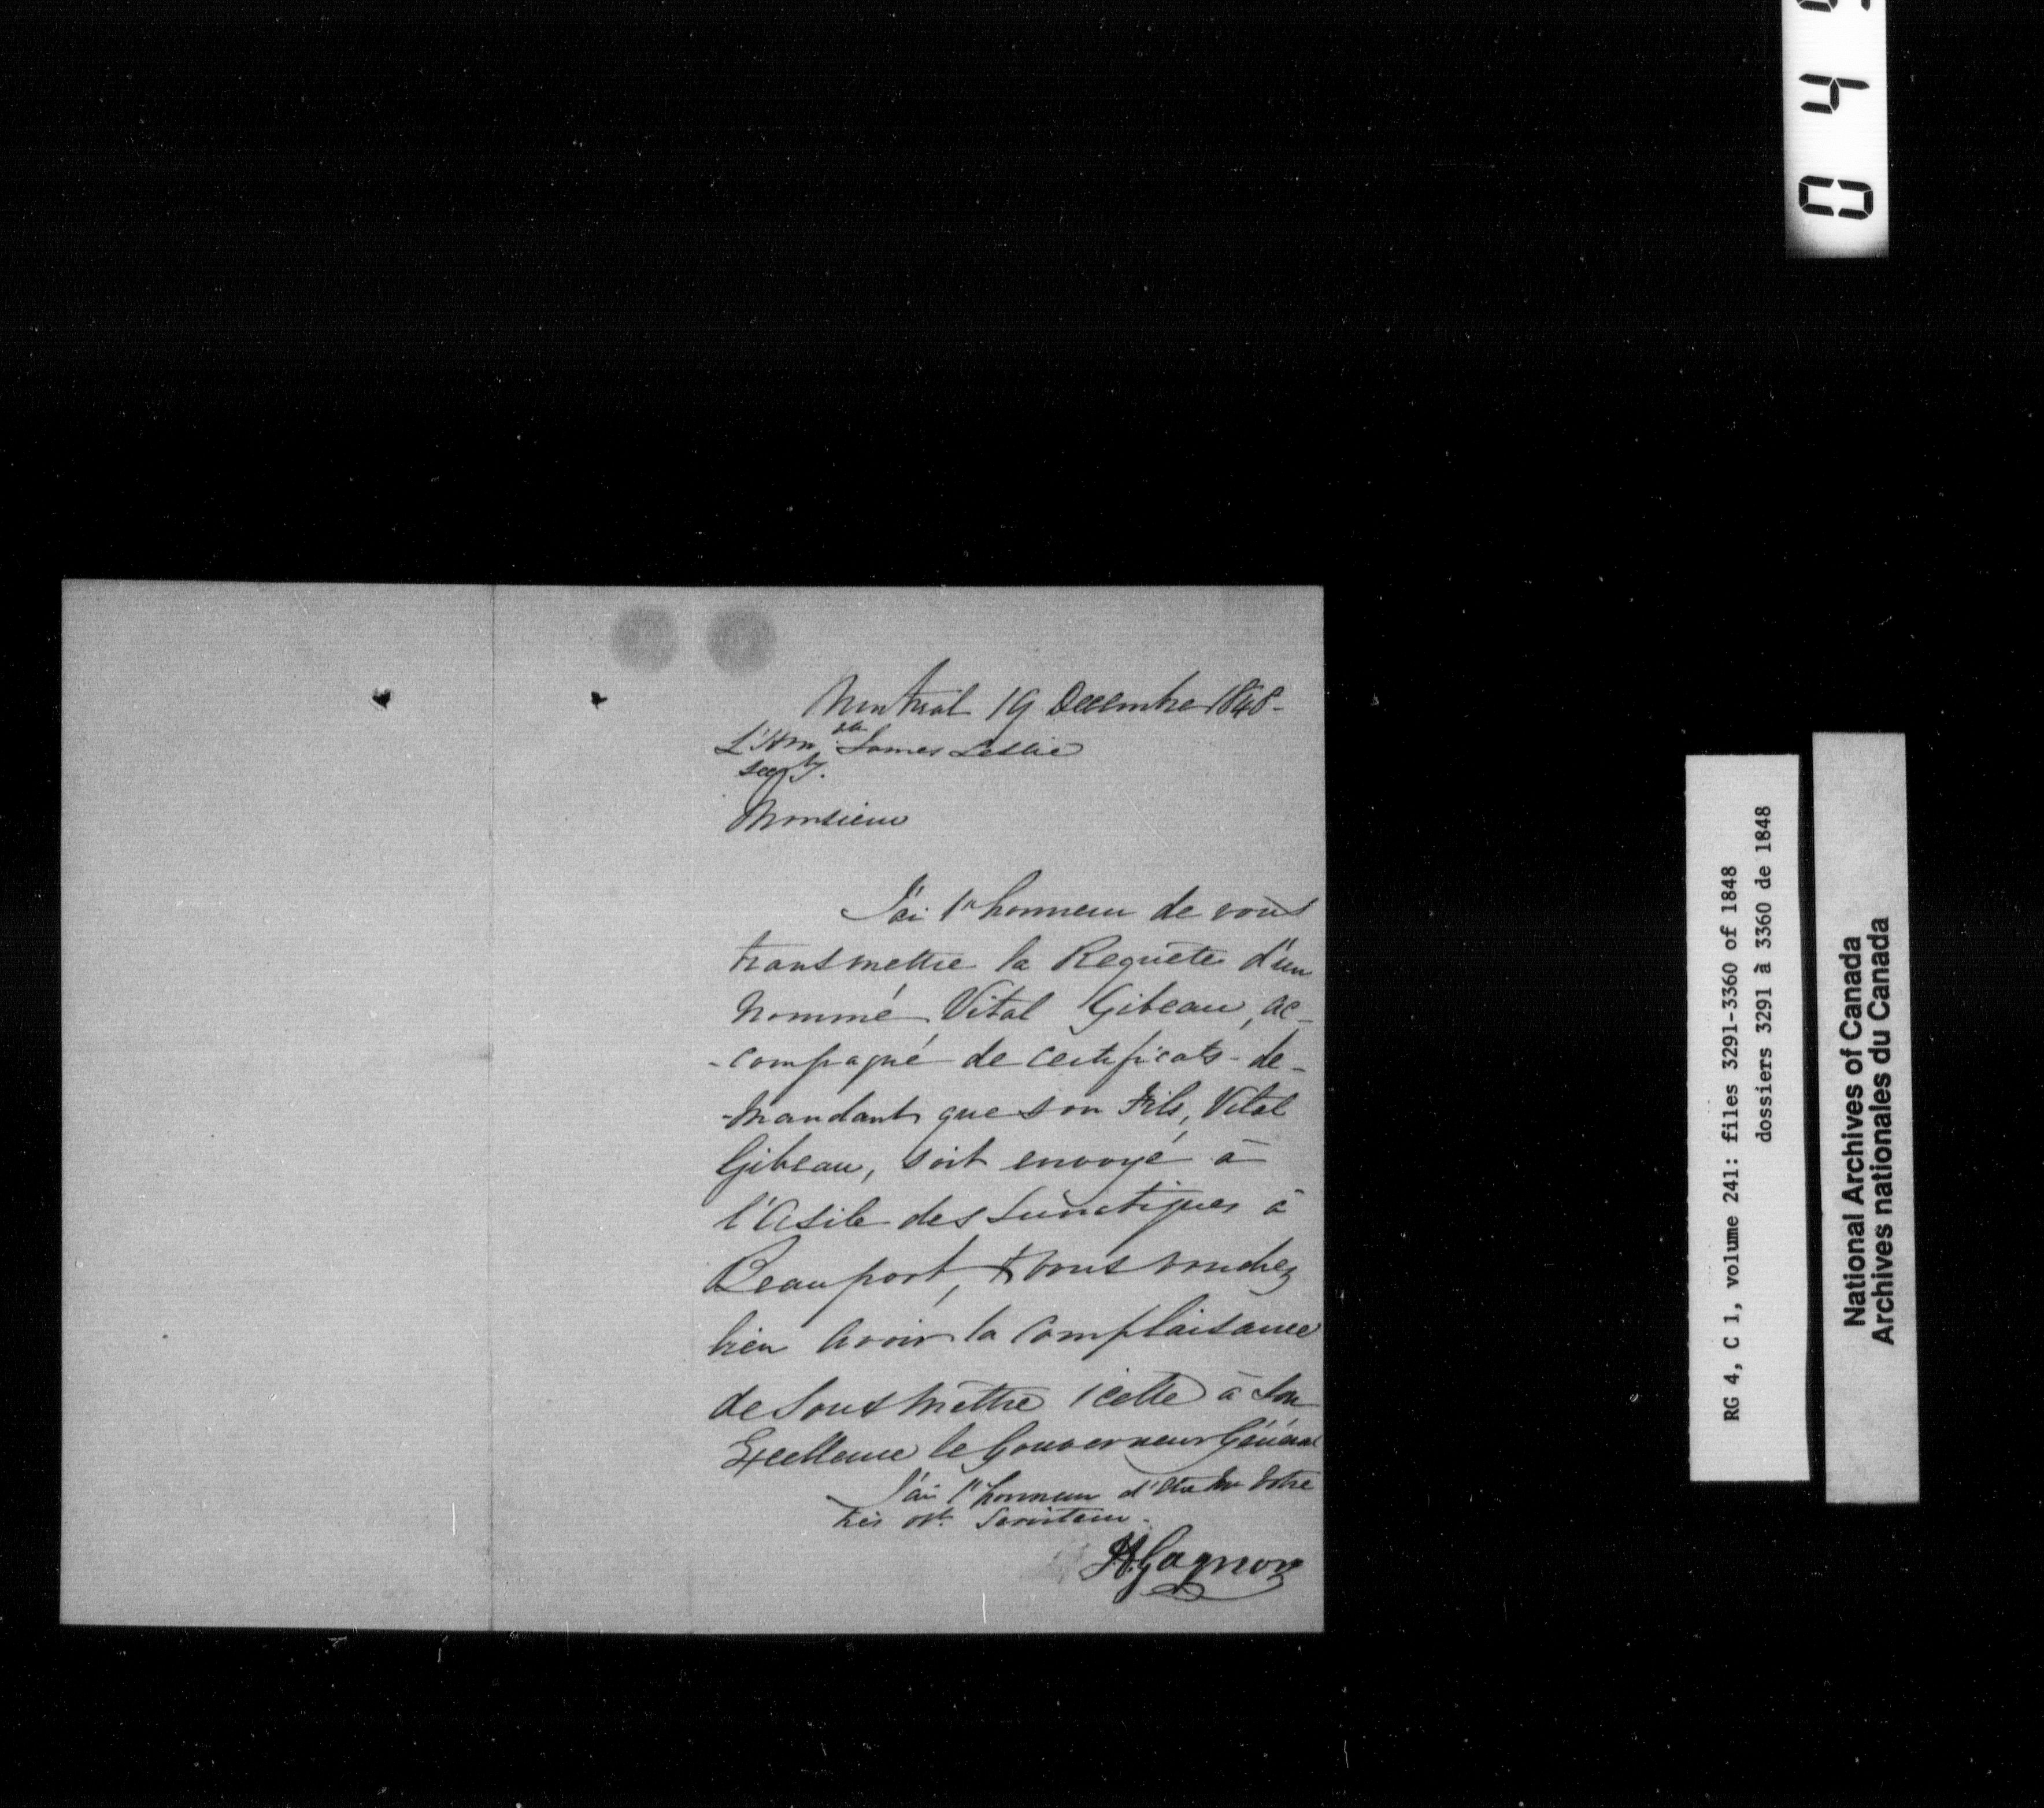 Montreal 19 Decembre 1848-
L'Hon.ble James Leslie
Secy.
Monsieur
J'ai l'honneur de vous
transmettre la Requête d'un
nommé Vital Gibeau, ac-
-compagné de certificats - de-
-mandant que son Fils, Vital
Gibeau, soit envoyé à
l'Asile des Lunatiques à
Beauport, & vous voudrez
bien avoir la complaisance
de Soumettre icelle à Son
Excellence le Gouverneur Général
J'ai l'honneur d'être Mr Votre
très obt. Serviteur.
H. Gagnon
0 4
RG 4, C 1, volume 241: files 3291-3360 of 1848
dossiers 3291 à 3360 de 1848
National Archives of Canada
Archives nationales du Canada